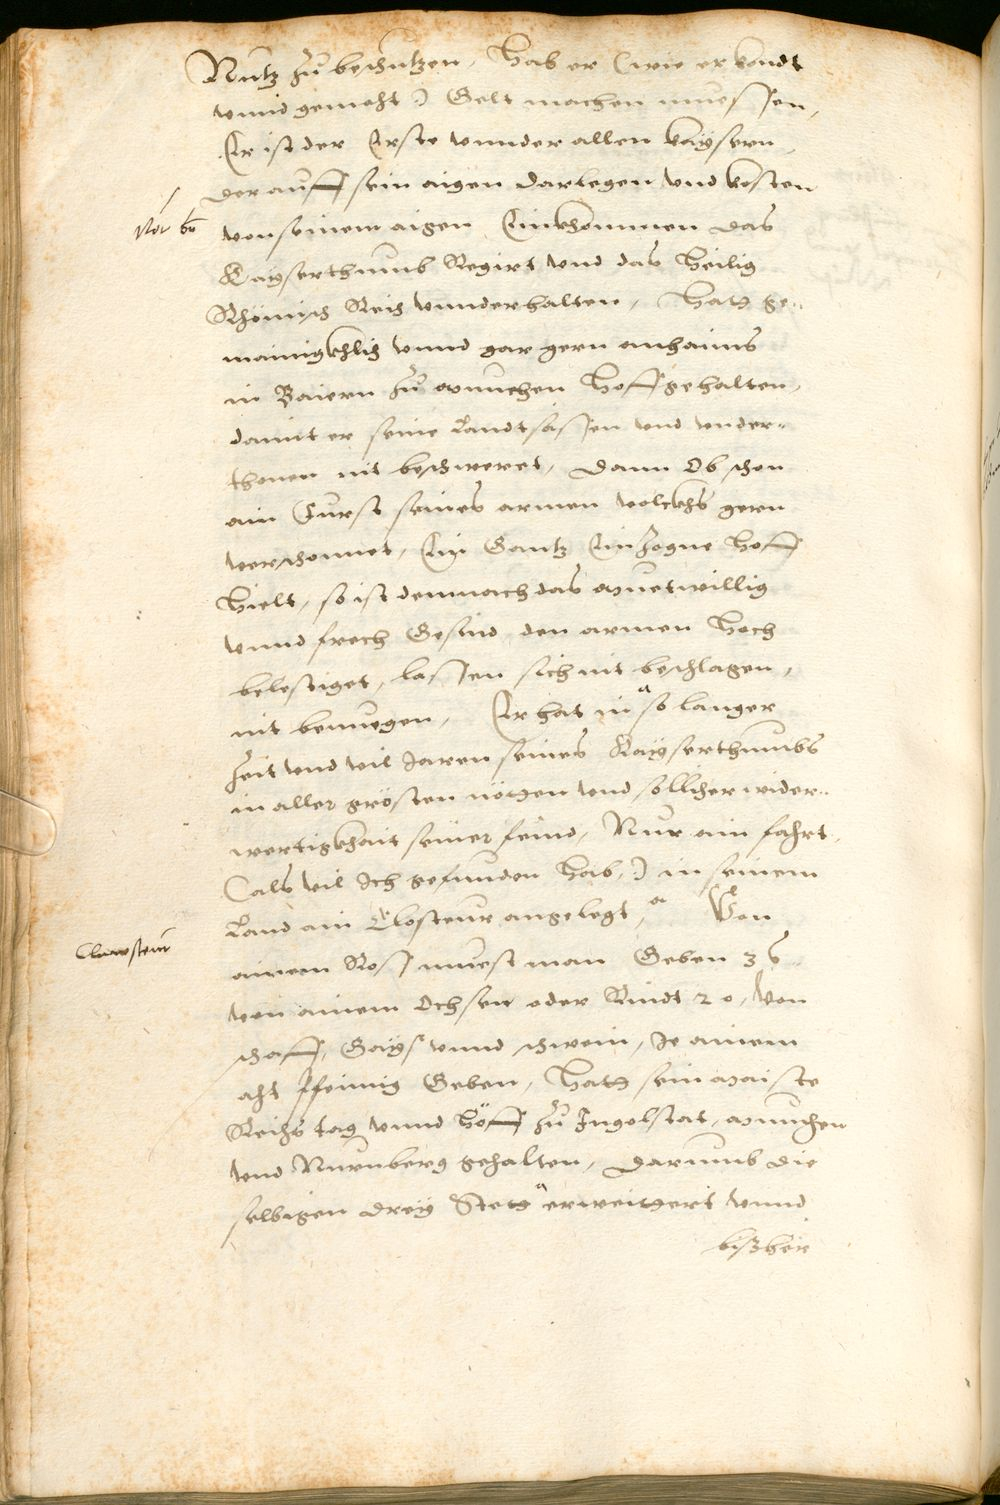 Nutz zu beschutzen, Hab er (wie er kondt
vnnd gemeht) Gelt machen muessen,
Er ist der Erste vnnder allen kaÿsern,
der auff sein aigen Darlegen vnd kosten
Not
von seinem aigen Einkhommen das
Kayserthumb Regirt vnd das Heilig
Rhömisch Reich vnnderhalten, Hatt ge-
mainigkhlich vnnd gar gern anhaims
in Baiern zu Munchen Hoff gehalten,
damit er seine Landtsässen vnd vnder-
thonen nit beschweret, Dann Ob schon
ain Furst seines armen volckhs gern
verschonnet, Ein Gantz Einzogne Hoff
Hielt, so ist demnach das Muetwillig
vnnd frech Gesind den armen Hoch
belestiget, lassen sich nit beschlagen,
nit benuegen, Er hat in so langer
Zeit vnd vil Jaren seines Kaÿserthumbs
in aller grösten nötten vnd söllicher wider-
wertigkhait seiner feind, Nur ain fahrt
(als vil Ich gefunden hab,) in seinem
Land ain Closteur angelegt, Von
Clawsteur
ainem Ross muest man Geben 3 ß
von ainem Ochsen oder Rindt 20, Von
schaff, Gaÿs vnnd schwein, Je ainem
aht pfennig Geben, Hatt sein Maiste
Reichs tag vnnd Höff zu Ingolstat, Munchen
vnd Nurnberg gehalten, Darumb die
selbigen dreÿ Stett erweittert vnnd
bißher